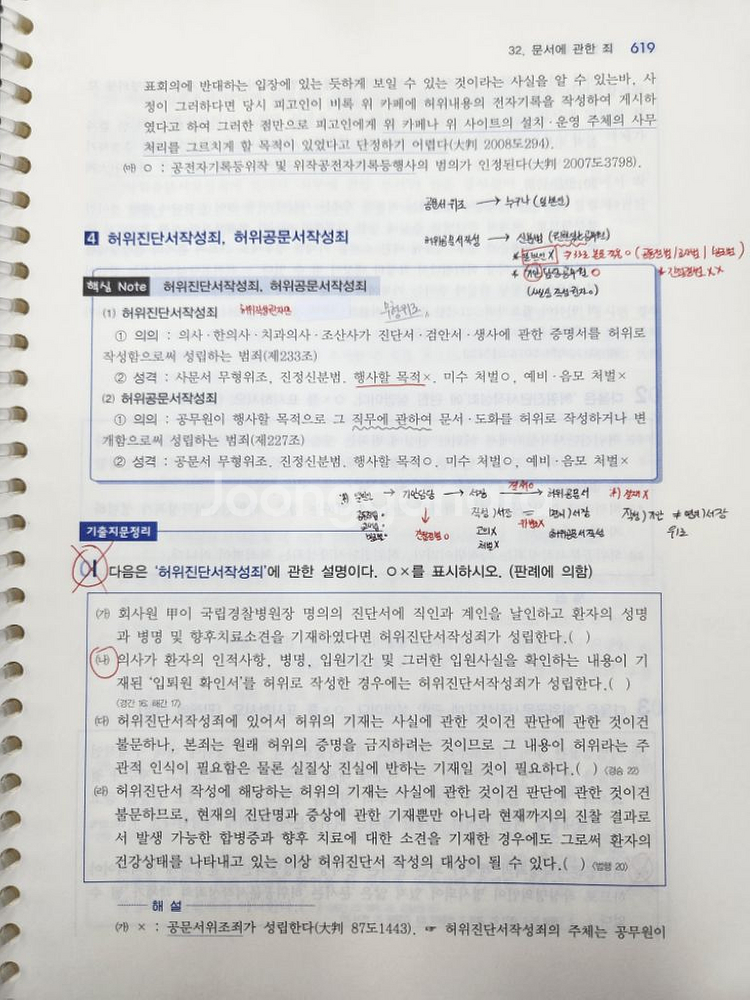 32. 문서에 관한 죄 619
표회의에 반대하는 입장에 있는 듯하게 보일 수 있는 것이라는 사실을 알 수 있는바, 사
정이 그러하다면 당시 피고인이 비록 위 카페에 허위내용의 전자기록을 작성하여 게시하
였다고 하여 그러한 점만으로 피고인에게 위 카페나 위 사이트의 설치·운영 주체의 사무
처리를 그르치게 할 목적이 있었다고 단정하기 어렵다(大判 2008도294).
㈕ ○ : 공전자기록등위작 및 위작공전자기록등행사의 범의가 인정된다(大判 2007도3798).
공문서 위조 → 누구나 (일반인)
4 허위진단서작성죄, 허위공문서작성죄
허위공문서작성 → 신분범
핵심 Note 허위진단서작성죄, 허위공문서작성죄
(1) 허위진단서작성죄
무형위조
① 의의 : 의사·한의사·치과의사·조산사가 진단서·검안서·생사에 관한 증명서를 허위로
작성함으로써 성립하는 범죄(제233조)
② 성격 : 사문서 무형위조, 진정신분범. 행사할 목적×. 미수 처벌○, 예비·음모 처벌×
(2) 허위공문서작성죄
① 의의 : 공무원이 행사할 목적으로 그 직무에 관하여 문서·도화를 허위로 작성하거나 변
개함으로써 성립하는 범죄(제227조)
② 성격 : 공문서 무형위조. 진정신분범. 행사할 목적○. 미수 처벌○, 예비·음모 처벌×
→ 기안담당 → 서장 → 허위공문서
기출지문정리
01 다음은 '허위진단서작성죄'에 관한 설명이다. ○×를 표시하시오. (판례에 의함)
㈎ 회사원 甲이 국립경찰병원장 명의의 진단서에 직인과 계인을 날인하고 환자의 성명
과 병명 및 향후치료소견을 기재하였다면 허위진단서작성죄가 성립한다.( )
㈏ 의사가 환자의 인적사항, 병명, 입원기간 및 그러한 입원사실을 확인하는 내용이 기
재된 '입퇴원 확인서'를 허위로 작성한 경우에는 허위진단서작성죄가 성립한다.( )
(경간 16, 해간 17)
㈐ 허위진단서작성죄에 있어서 허위의 기재는 사실에 관한 것이건 판단에 관한 것이건
불문하나, 본죄는 원래 허위의 증명을 금지하려는 것이므로 그 내용이 허위라는 주
관적 인식이 필요함은 물론 실질상 진실에 반하는 기재일 것이 필요하다.( ) (경승 22)
㈑ 허위진단서 작성에 해당하는 허위의 기재는 사실에 관한 것이건 판단에 관한 것이건
불문하므로, 현재의 진단명과 증상에 관한 기재뿐만 아니라 현재까지의 진찰 결과로
서 발생 가능한 합병증과 향후 치료에 대한 소견을 기재한 경우에도 그로써 환자의
건강상태를 나타내고 있는 이상 허위진단서 작성의 대상이 될 수 있다.( ) (법행 20)
해 설
㈎ × : 공문서위조죄가 성립한다(大判 87도1443). ☞ 허위진단서작성죄의 주체는 공무원이